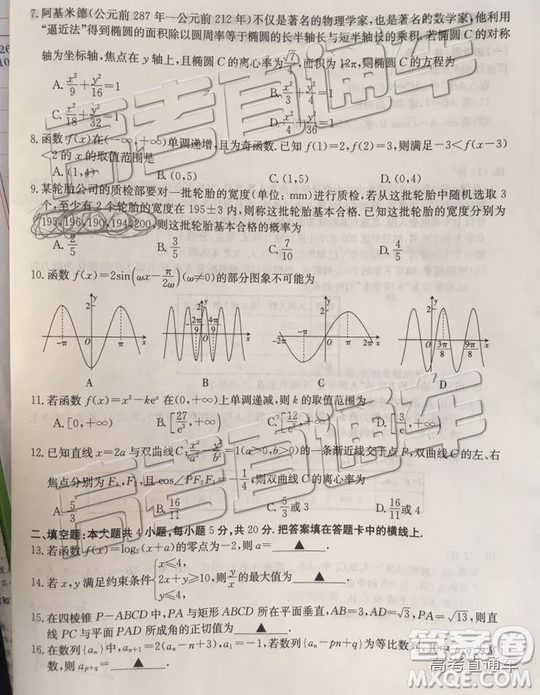 7.阿基米德(公元前 287 年—公元前 212 年)不仅是著名的物理学家,也是著名的数学家,他利用
“逼近法”得到椭圆的面积除以圆周率等于椭圆的长半轴长与短半轴长的乘积.若椭圆 C 的对称
轴为坐标轴,焦点在 y 轴上,且椭圆 C 的离心率为√7/4,面积为 12π,则椭圆 C 的方程为
A. x²/9+y²/16=1 B. x²/3+y²/4=1
C. x²/18+y²/32=1 D. x²/4+y²/36=1
8.函数 f(x)在(-∞,+∞)单调递增,且为奇函数.已知 f(1)=2,f(2)=3,则满足-3<f(x-3)
<2 的 x 的取值范围是
A.(1,4) B.(0,5) C.(1,5) D.(0,4)
9.某轮胎公司的质检部要对一批轮胎的宽度(单位:mm)进行质检,若从这批轮胎中随机选取 3
个,至少有 2 个轮胎的宽度在 195±3 内,则称这批轮胎基本合格.已知这批轮胎的宽度分别为
195,196,190,194,200,则这批轮胎基本合格的概率为
A. 2/5 B. 3/5 C. 7/10 D. 4/5
10.函数 f(x)=2sin(ωx-π/2ω)(ω≠0)的部分图象不可能为
y 2 -π O π x -2
y 2 -2π/9 4π/9 x
y 2 O 2π x -2
y 2 O 3π/8 9π/8 x
A B C D
11.若函数 f(x)=x³-keˣ 在(0,+∞)上单调递减,则 k 的取值范围为
A.[0,+∞) B.[27/e³,+∞) C.[12/e²,+∞) D.[3/e,+∞)
12.已知直线 x=2a 与双曲线 C:x²/a²-y²/b²=1(a>0,b>0)的一条渐近线交于点 P,双曲线 C 的左、右
焦点分别为 F₁,F₂,且 cos∠PF₂F₁=-1/4,则双曲线 C 的离心率为
A. 5/3 B. 16/11 C. 5/3或 3 D. 16/11或 4
二、填空题:本大题共 4 小题,每小题 5 分,共 20 分.把答案填在答题卡中的横线上.
13.若函数 f(x)=log₂(x+a)的零点为-2,则 a= ▲ .
14.若 x,y 满足约束条件{x≤4, 2x+y≥10, y≤4,则 y/x 的最大值为 ▲ .
15.在四棱锥 P-ABCD 中,PA 与矩形 ABCD 所在平面垂直,AB=3,AD=√3,PA=√13,则直
线 PC 与平面 PAD 所成角的正切值为 ▲ .
16.在数列{aₙ}中,aₙ₊₁=2(aₙ-n+3),a₁=-1,若数列{aₙ-pn+q}为等比数列,其中
数,则 aₚ₊q= ▲ .
高考直通车
高考直通车
答案圈
高考直通车